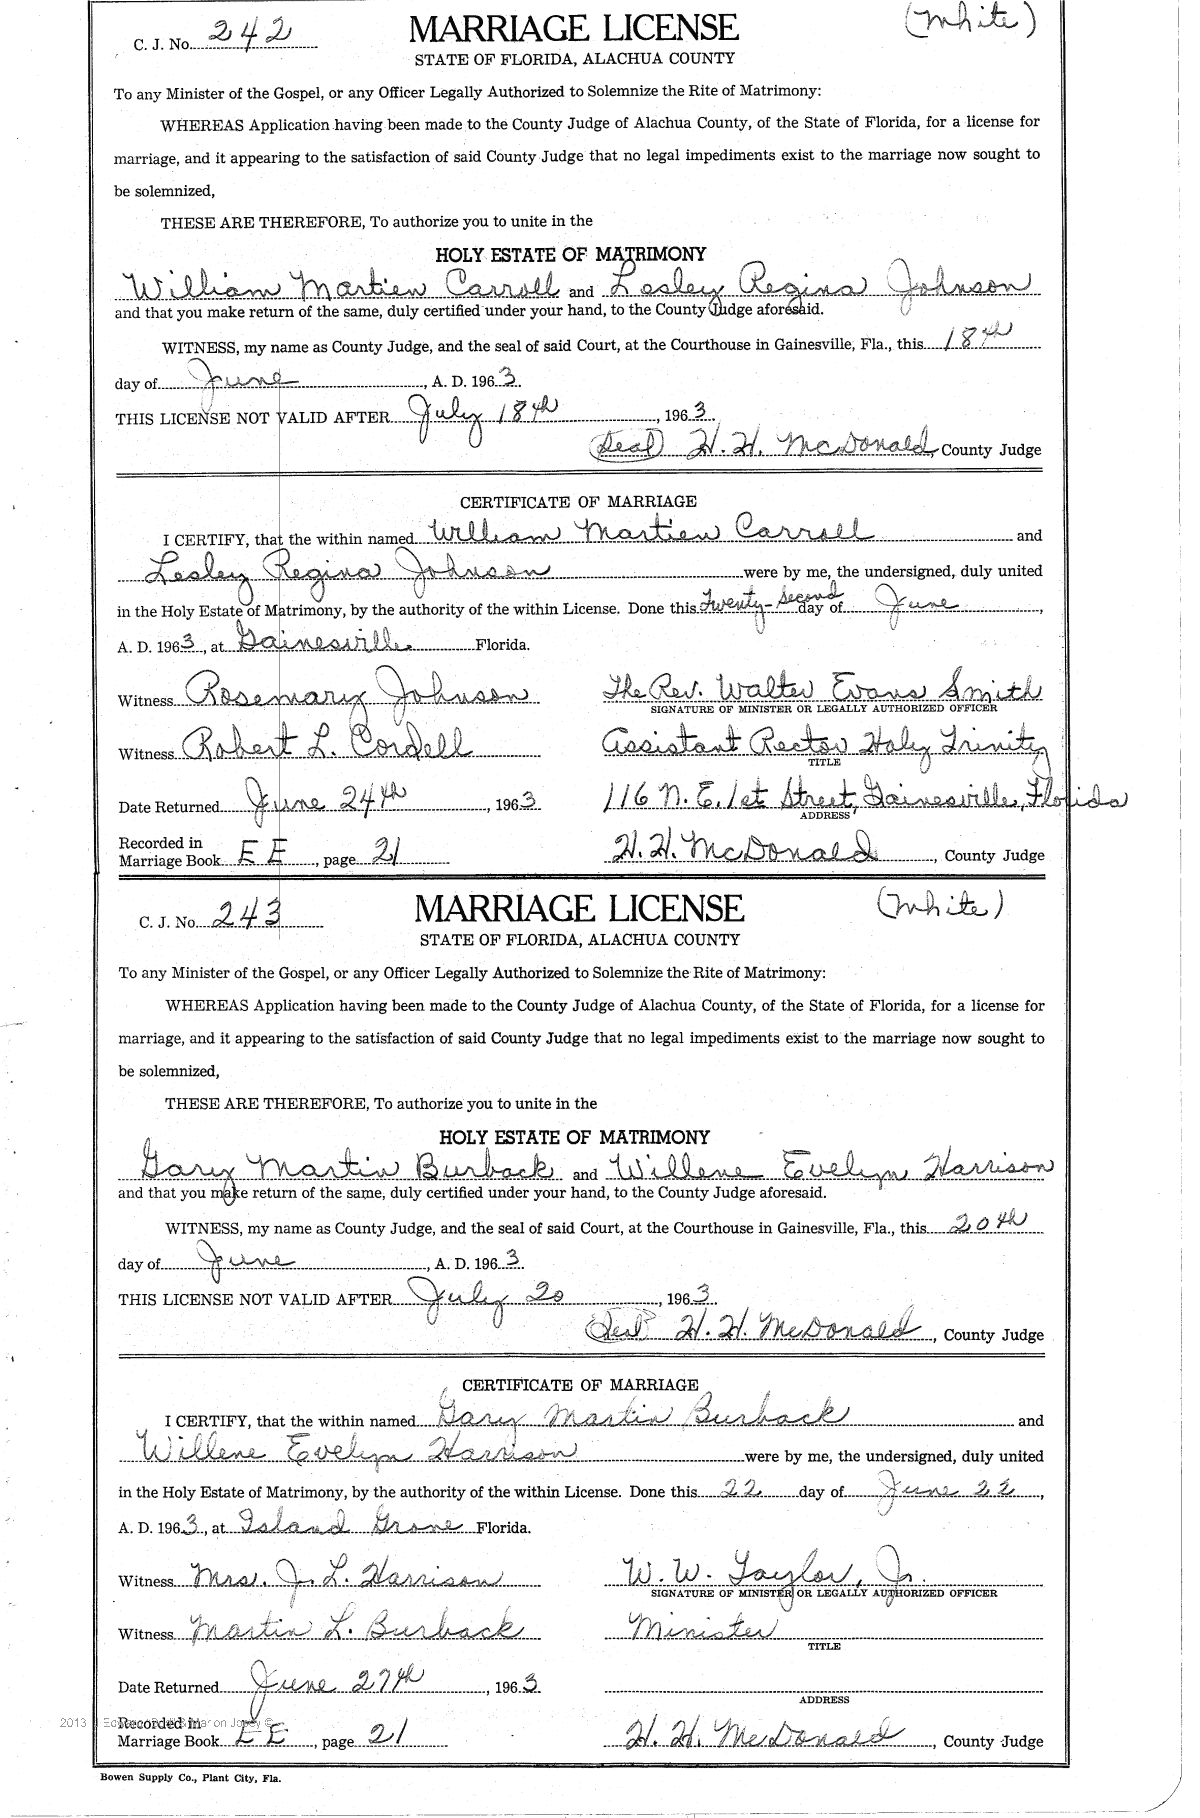 C. J. No. 242 MARRIAGE LICENSE (White)
STATE OF FLORIDA, ALACHUA COUNTY
To any Minister of the Gospel, or any Officer Legally Authorized to Solemnize the Rite of Matrimony:
WHEREAS Application having been made to the County Judge of Alachua County, of the State of Florida, for a license for
marriage, and it appearing to the satisfaction of said County Judge that no legal impediments exist to the marriage now sought to
be solemnized,
THESE ARE THEREFORE, To authorize you to unite in the
HOLY ESTATE OF MATRIMONY
William Martien Carroll and Lesley Regina Johnson
and that you make return of the same, duly certified under your hand, to the County Judge aforesaid.
WITNESS, my name as County Judge, and the seal of said Court, at the Courthouse in Gainesville, Fla., this 18th
day of June, A. D. 1963.
THIS LICENSE NOT VALID AFTER July 18th, 1963
(Seal) H. H. McDonald, County Judge
CERTIFICATE OF MARRIAGE
I CERTIFY, that the within named William Martien Carroll and
Lesley Regina Johnson were by me, the undersigned, duly united
in the Holy Estate of Matrimony, by the authority of the within License. Done this Twenty-Second day of June,
A. D. 1963, at Gainesville Florida.
Witness Rosemary Johnson The Rev. Walter Evans Smith
SIGNATURE OF MINISTER OR LEGALLY AUTHORIZED OFFICER
Witness Robert L. Cordell Assistant Rector Holy Trinity
TITLE
Date Returned June 24th, 1963 116 N. E. 1st Street, Gainesville, Florida
ADDRESS
Recorded in
Marriage Book E E, page 21 H. H. McDonald, County Judge
C. J. No. 243 MARRIAGE LICENSE (White)
STATE OF FLORIDA, ALACHUA COUNTY
To any Minister of the Gospel, or any Officer Legally Authorized to Solemnize the Rite of Matrimony:
WHEREAS Application having been made to the County Judge of Alachua County, of the State of Florida, for a license for
marriage, and it appearing to the satisfaction of said County Judge that no legal impediments exist to the marriage now sought to
be solemnized,
THESE ARE THEREFORE, To authorize you to unite in the
HOLY ESTATE OF MATRIMONY
Gary Martin Burback and Willene Evelyn Harrison
and that you make return of the same, duly certified under your hand, to the County Judge aforesaid.
WITNESS, my name as County Judge, and the seal of said Court, at the Courthouse in Gainesville, Fla., this 20th
day of June, A. D. 1963.
THIS LICENSE NOT VALID AFTER July 20, 1963
(Seal) H. H. McDonald, County Judge
CERTIFICATE OF MARRIAGE
I CERTIFY, that the within named Gary Martin Burback and
Willene Evelyn Harrison were by me, the undersigned, duly united
in the Holy Estate of Matrimony, by the authority of the within License. Done this 22 day of June 22,
A. D. 1963, at Island Grove Florida.
Witness Mrs. J. L. Harrison W. W. Taylor, Jr.
SIGNATURE OF MINISTER OR LEGALLY AUTHORIZED OFFICER
Witness Martin L. Burback Minister
TITLE
Date Returned June 27th, 1963
ADDRESS
2013 Recorded in
Marriage Book E E, page 21 H. H. McDonald, County Judge
Bowen Supply Co., Plant City, Fla.